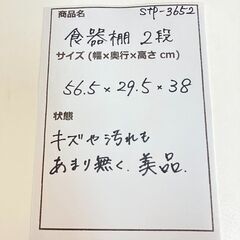 商品名 stp-3652
食器棚 2段
サイズ (幅×奥行×高さ cm)
56.5 × 29.5 × 38
状態
キズや汚れも
あまり無く、美品.